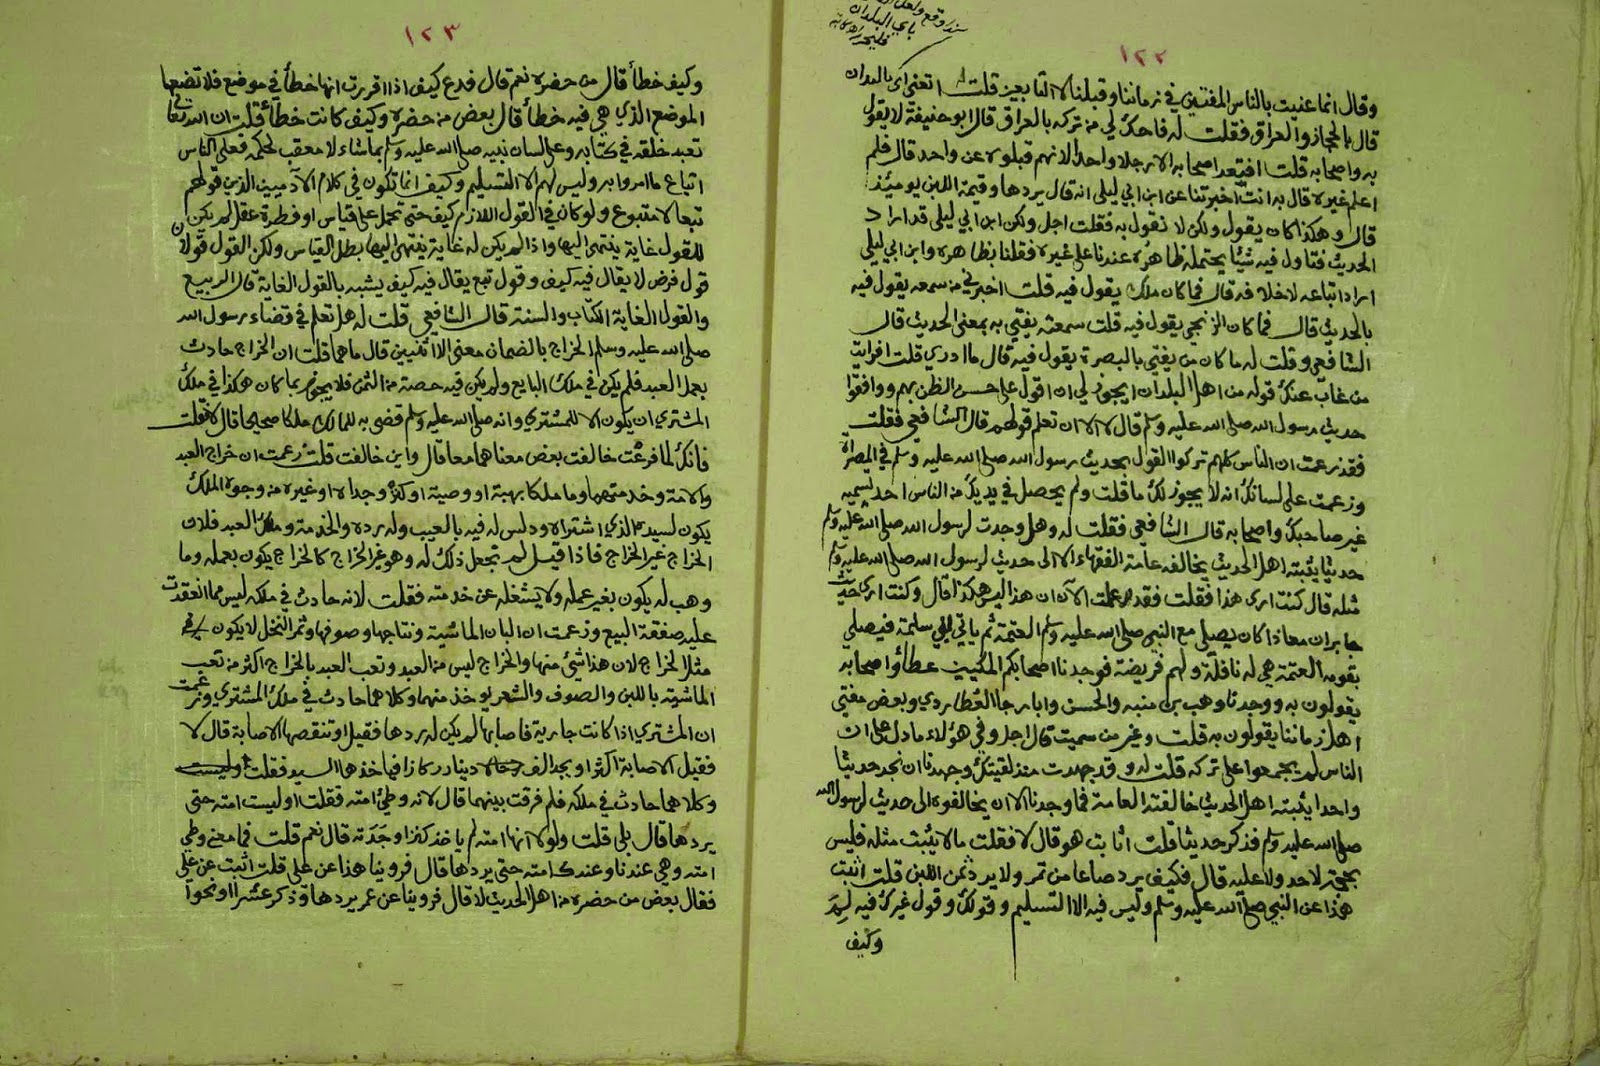 ١٢٢
وقال انما عنيت بالناس المفتين في زماننا وقبلنا لا التابعين قلت له اتعني اي بالبلدان
قال بالحجاز والعراق فقلت له فاحك لي من تركه بالعراق قال ابو حنيفة لا يقول
به واصحابه قلت افتعد اصحابه الا رجلا واحدا لانهم قبلوه عن واحد قال فلم
اعلم غيره قال به انت اخبرتنا عن ابن ابي ليلى انه قال يردها وقيمة اللبن يومئذ
قال وهكذا كان يقول ولكن لا نقول به فقلت اجل ولكن ابن ابي ليلى قد اراد
الحديث فتاول فيه شيئا يحتمله ظاهره عندنا على غيره فقلنا بظاهره وابن ابي ليلى
اراد اتباعه لا خلافه قال فما كان ملك يقول فيه قلت اخبرني من سمعه يقول فيه
بالحديث قال فما كان الزنجي يقول فيه قلت سمعته يفتي به بمعنى الحديث قال
الشافعي وقلت له ما كان من يفتي بالبصرة يقول فيه قال ما ادري قلت افرايت
من غاب عنك قوله من اهل البلدان ايجوز لي ان اقول على حسن الظن بهم ووافقوا
حديث رسول الله صلى الله عليه وسلم قال لا الا ان تعلم قولهم قال الشافعي فقلت
فقد زعمت ان الناس كلهم تركوا القول بحديث رسول الله صلى الله عليه وسلم في المصراة
وزعمت على لسانك انه لا يجوز لك ما قلت ولم يحصل في يديك من الناس احد تسميه
غير صاحبك واصحابه قال الشافعي فقلت له وهل وجدت لرسول الله صلى الله عليه وسلم
حديثا يثبته اهل الحديث يخالفه عامة الفقهاء الا الى حديث لرسول الله صلى الله عليه وسلم
مثله قال كنت ارى هذا فقلت فقد علمت الآن ان هذا ليس هكذا قال وكنت ارى حديث
جابر ان معاذا كان يصلي مع النبي صلى الله عليه وسلم العتمة ثم ياتي بني سلمة فيصلي
بقومه العتمة هي له نافلة ولهم فريضة فوجدنا اصحابكم المكيين عطاء واصحابه
يقولون به ووجدنا وهب بن منبه والحسن وابا رجا العطاردي وبعض مفتي
اهل زماننا يقولون به قلت وغير من سميت قال اجل وفي هؤلاء ما دل على ان
الناس لم يجمعوا على تركه قلت له وقد جهدت منذ لقيتك وجهدنا ان نجد حديثا
واحدا يثبته اهل الحديث خالفته العامة فما وجدنا الا ان يخالفوه الى حديث لرسول الله
صلى الله عليه وسلم فذكر حديثا قلت اثابت هو قال لا فقلت ما لا يثبت مثله فليس
بحجة لاحد ولا عليه قال فكيف يرد صاعا من تمر ولا يرد ثمن اللبن قلت اثبت
هذا عن النبي صلى الله عليه وسلم وليس فيه الا التسليم وقولك وقول غيرك فيه لم
وكيف
١٢٣
وكيف خطأ قال من حضره نعم قال فدع كيف اذا اقررت انها خطأ في موضع فلا تضعها
الموضع الذي هي فيه خطأ قال بعض من حضره وكيف كانت خطأ قلت ان الله تعالى
تعبد خلقه في كتابه وعلى لسان نبيه صلى الله عليه وسلم بما شاء لا معقب لحكمه فعلى الناس
اتباع ما امروا به وليس لهم الا التسليم وكيف انما تكون في كلام الآدميين الذين قولهم
تبعا لا متبوع ولو كان في القول اللازم كيف حتى تحمل على قياس او فطرة عقل لم يكن
للقول غاية ينتهى اليها واذا لم يكن له غاية ينتهى اليها بطل القياس ولكن القول قولان
قول فرض لا يقال فيه كيف وقول تبع يقال فيه كيف يشبه بالقول الغاية قال الربيع
والقول الغاية الكتاب والسنة قال الشافعي قلت له هل تعلم في قضاء رسول الله
صلى الله عليه وسلم الخراج بالضمان معنى الا اثنين قال ما هما قلت ان الخراج حادث
بعمل العبد فلم يكن في ملك البايع ولم يكن فيه حصة من الثمن فلا يجوز بما كان هكذا في ملك
المشتري ان يكون الا للمشتري وانه صلى الله عليه وسلم قضى به للمالك ملكا صحيحا قال لا قلت
فانك لما فرعت خالفت بعض معناهما معا قال واين خالفت قلت زعمت ان خراج العبد
والامة وخدمتهما وما ملكا بهبة او وصية او كنز وجداه او غيره من وجوه الملك
يكون لسيده الذي اشتراه ودلس له فيه بالعيب وله رده والخدمة وملك العبد فلان
الخراج غير الخراج فاذا قيل لم تجعل ذلك له وهو غير الخراج كالخراج يكون بعمله وما
وهب له يكون بغير عمله ولا يشغله عن خدمته فقلت لانه حادث في ملكه ليس مما انعقدت
عليه صفقة البيع وزعمت ان البان الماشية ونتاجها وصوفها وثمر النخل لا يكون
مثل الخراج لان هذا شئ منها والخراج ليس من العبد وتعب العبد بالخراج اكثر من تعب
الماشية باللبن والصوف والشعر يوخذ منهما وكلاهما حادث في ملك المشتري وزعمت
ان المشتري اذا كانت جارية فاصابها لم يكن له ردها فقيل او تنقصها الاصابة قال لا
فقيل الاصابة اكثر او يجد الف دينار ركازا فياخذها السيد فقلت
وكلاهما حادث في ملكه فلم فرقت بينهما قال لانه وطئ امته فقلت او ليست امته حتى
يردها قال بلى قلت ولولا انها امته لم ياخذ كنزا وجدته قال نعم قلت فما معنى وطي
امته وهي عندنا وعندك امته حتى يردها قال فروينا هذا عن علي قلت اثبت عن علي
فقال بعض من حضره من اهل الحديث لا قال فروينا عن عمر يردها وذكر عشرا او نحوا